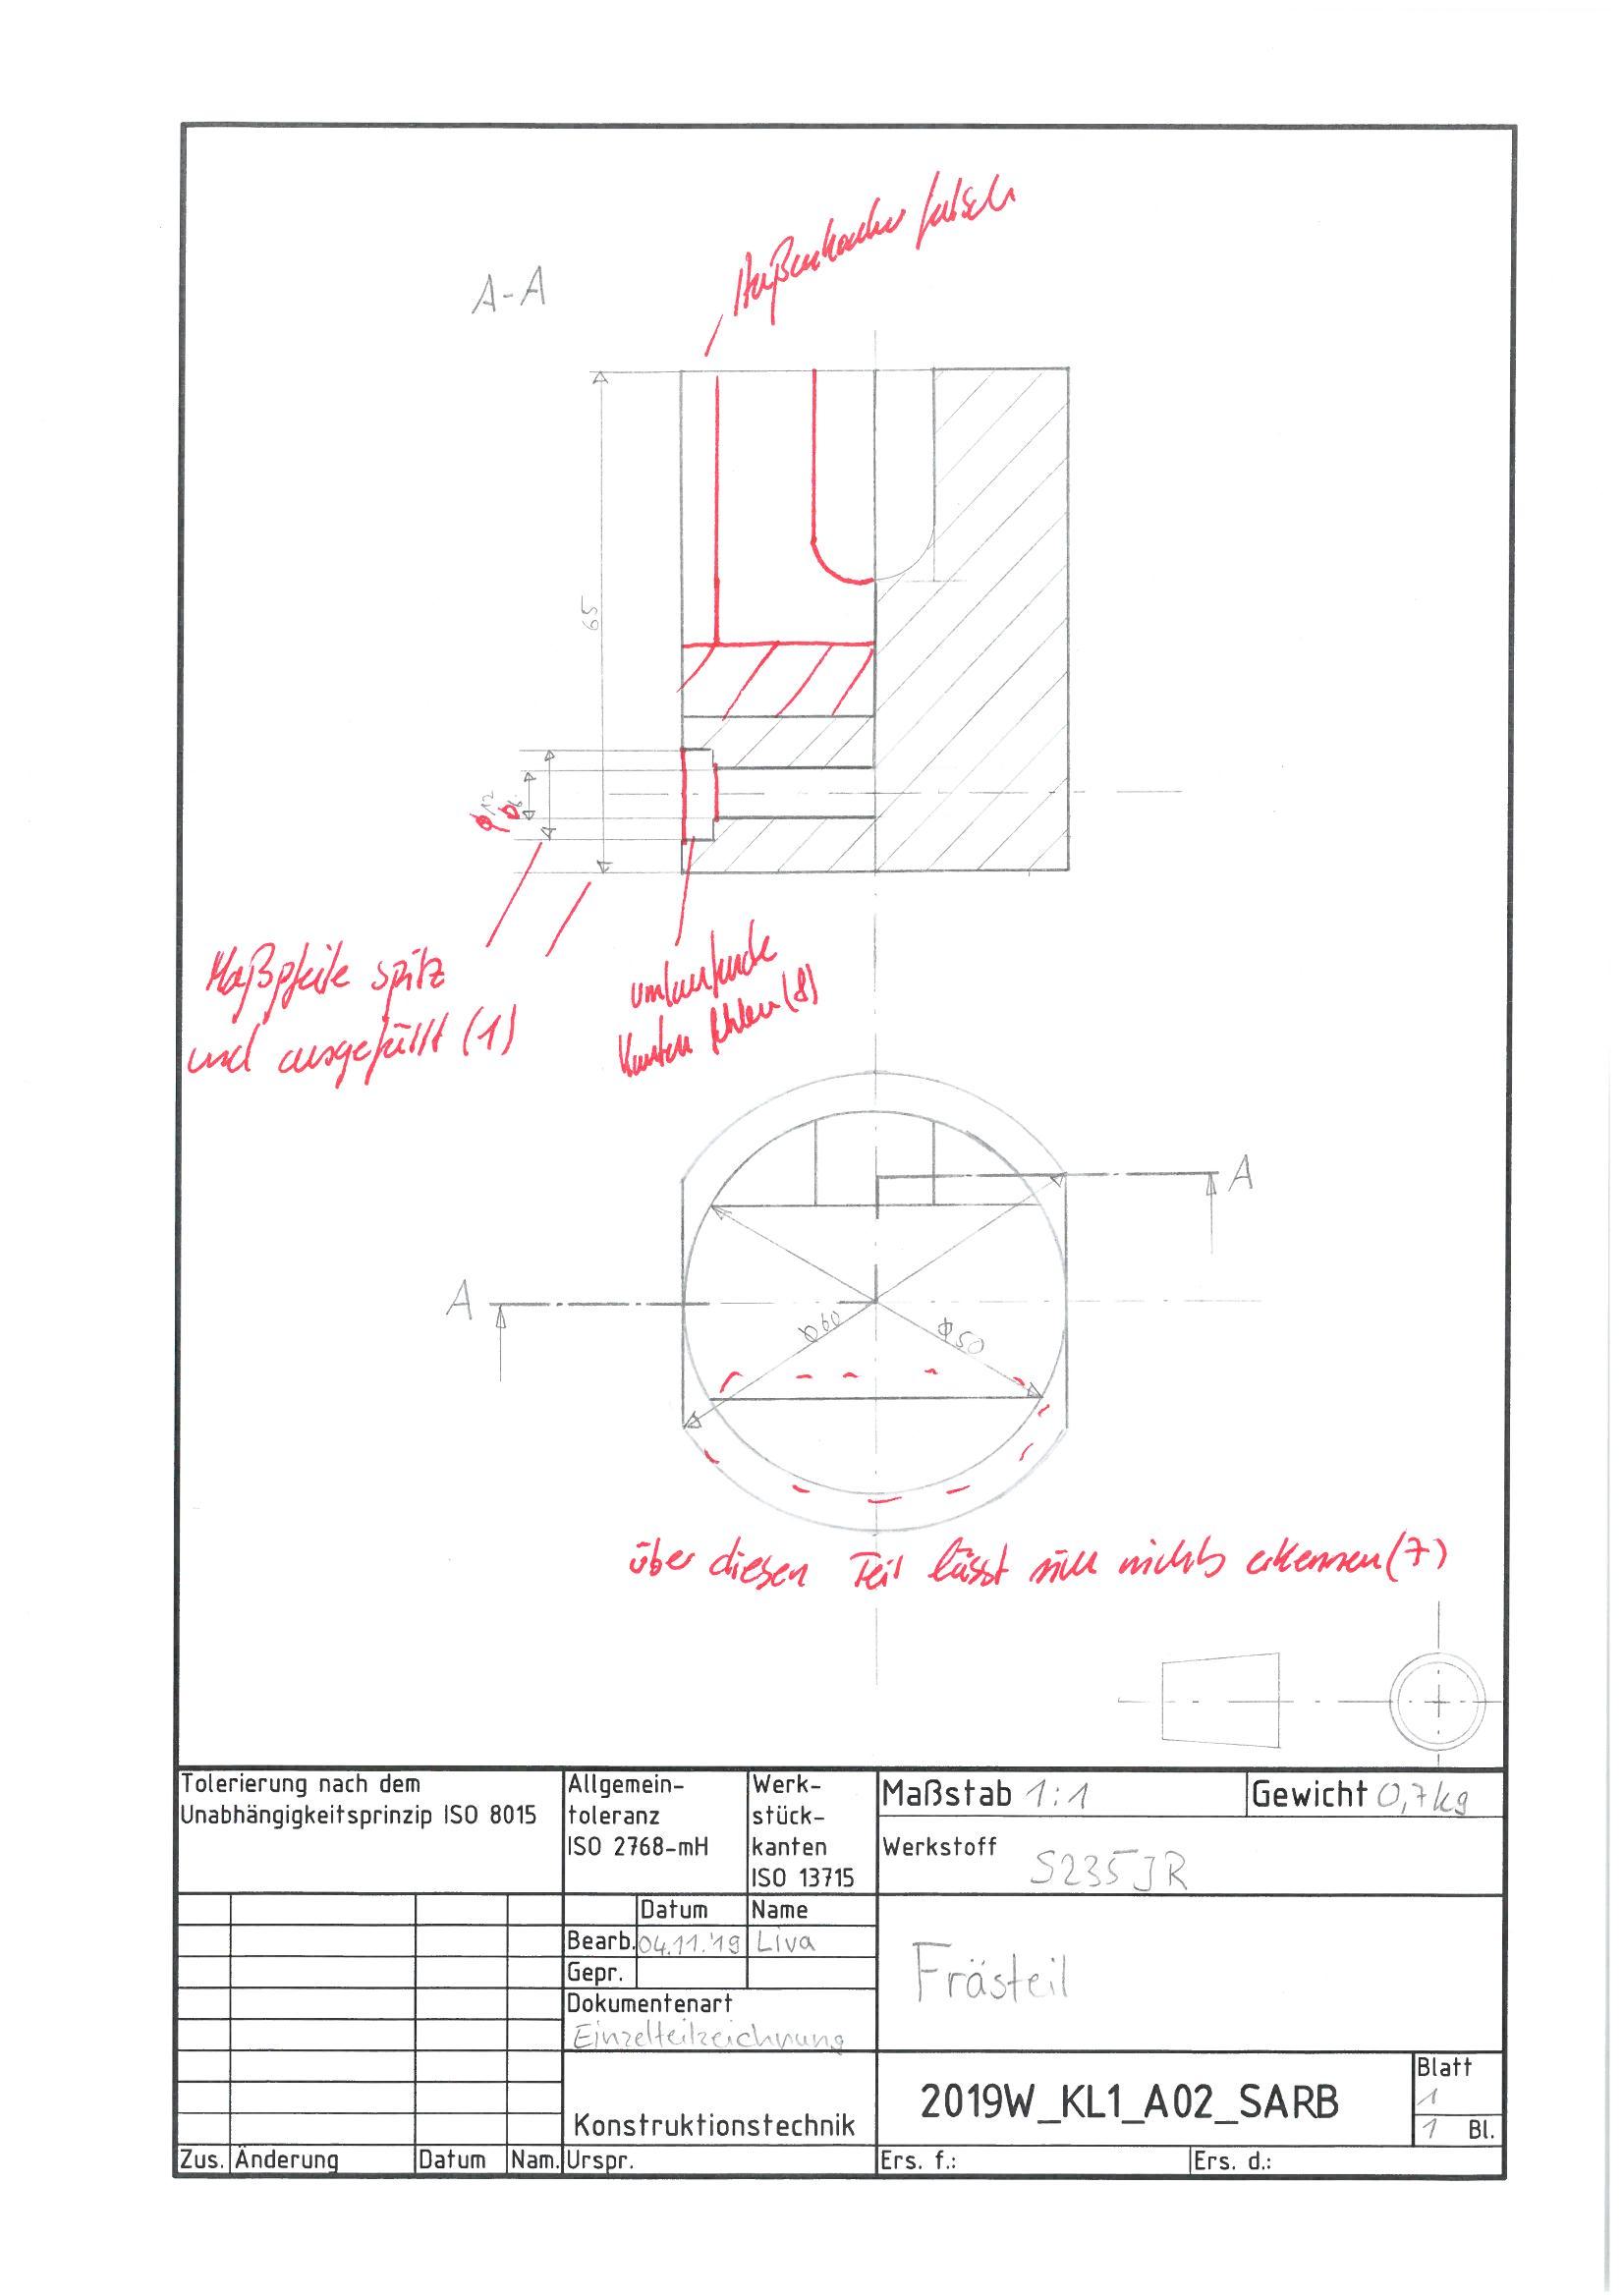 Außenkontur falsch
A-A
65
ϕ12
ϕ6
Maßpfeile spitz
und ausgefüllt (1)
umlaufende
Kanten fehlen (8)
A
A
ϕ60
ϕ50
über diesen Teil lässt sich nichts erkennen (7)
Tolerierung nach dem
Unabhängigkeitsprinzip ISO 8015
Allgemein-
toleranz
ISO 2768-mH
Werk-
stück-
kanten
ISO 13715
Maßstab 1:1
Gewicht 0,7kg
Werkstoff
S235JR
Datum
Name
Bearb. 04.11.'19 Liva
Gepr.
Dokumentenart
Einzelteilzeichnung
Frästeil
Konstruktionstechnik
2019W_KL1_A02_SARB
Blatt
1
1 Bl.
Zus. Änderung Datum Nam. Urspr. Ers. f.: Ers. d.: